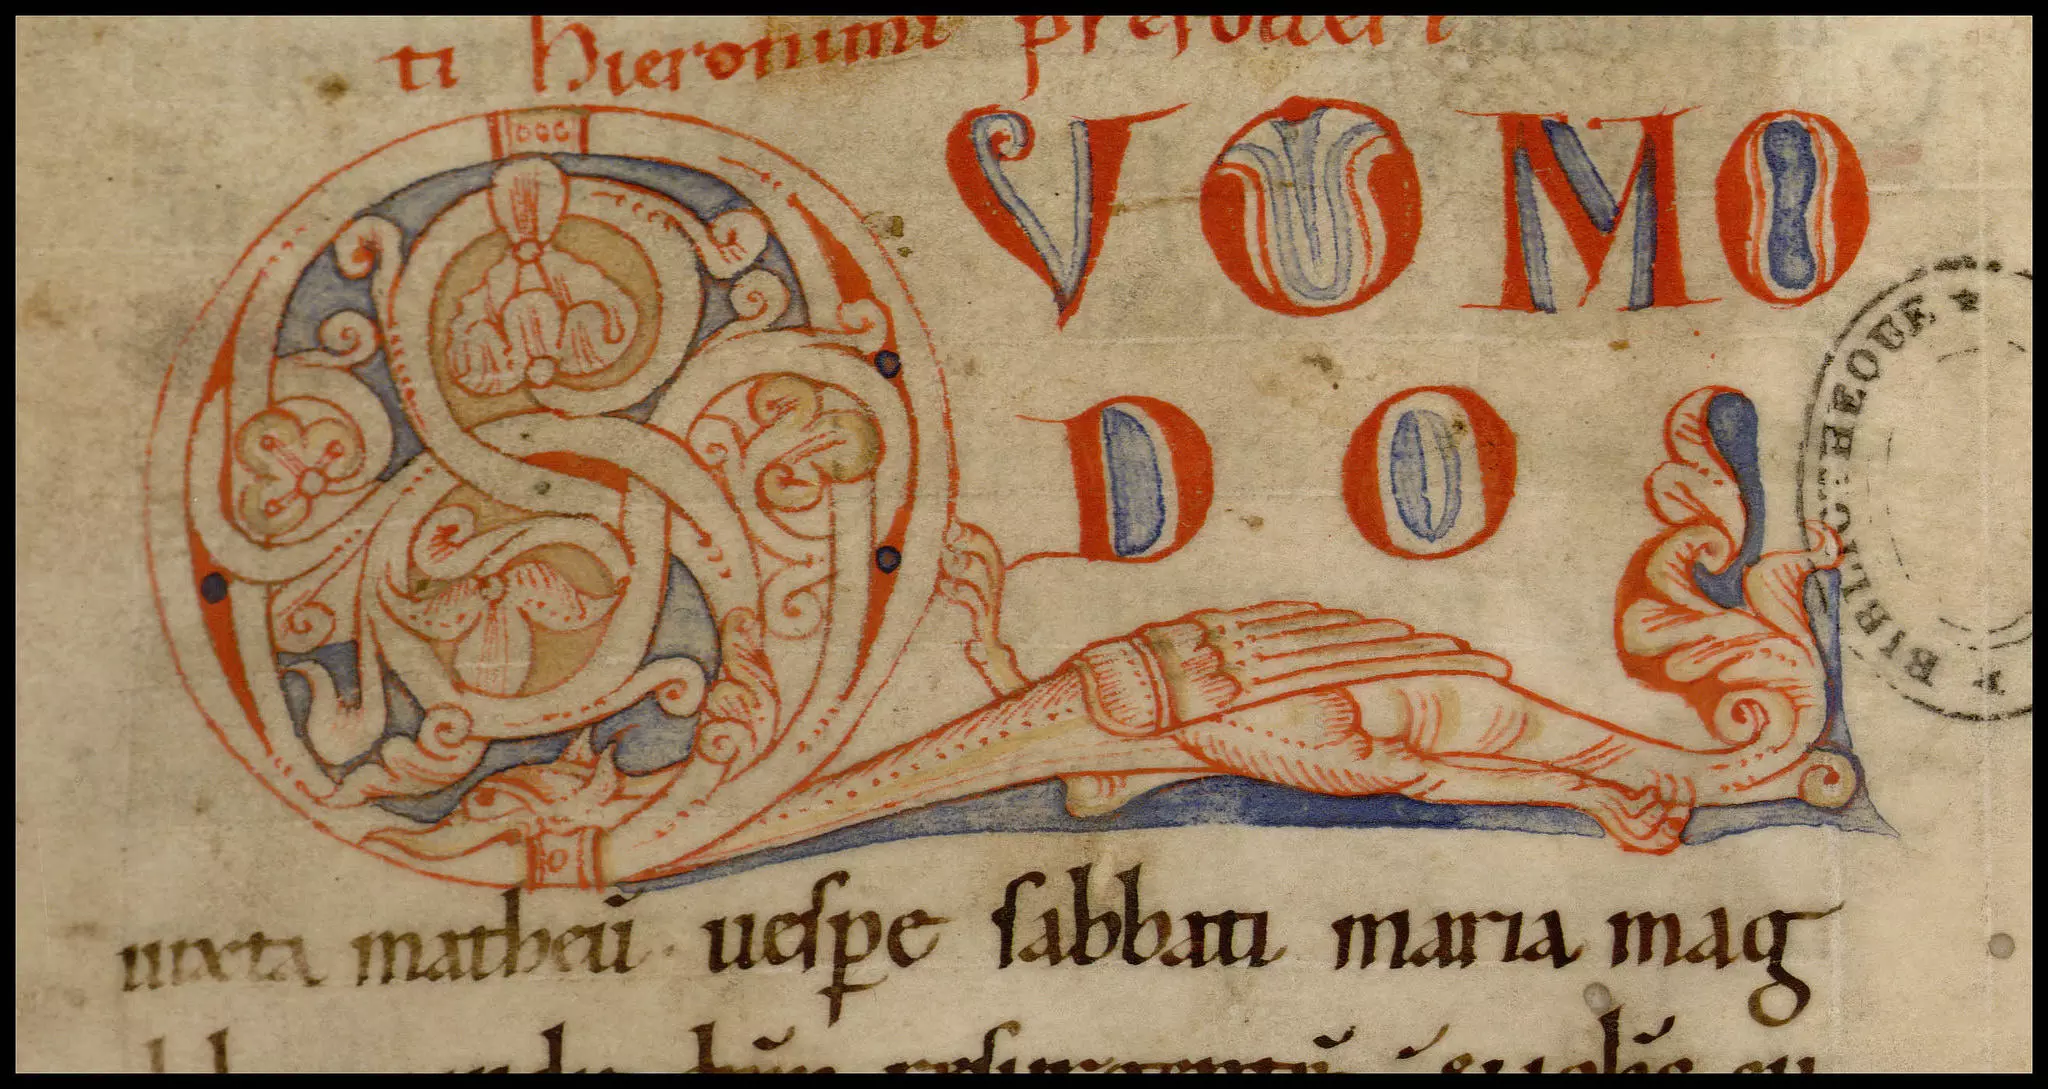 ti hieronimi presbiteri
QVOMO
DO
iuxta matheū uespe sabbati maria mag
BIBLIOTHEQUE